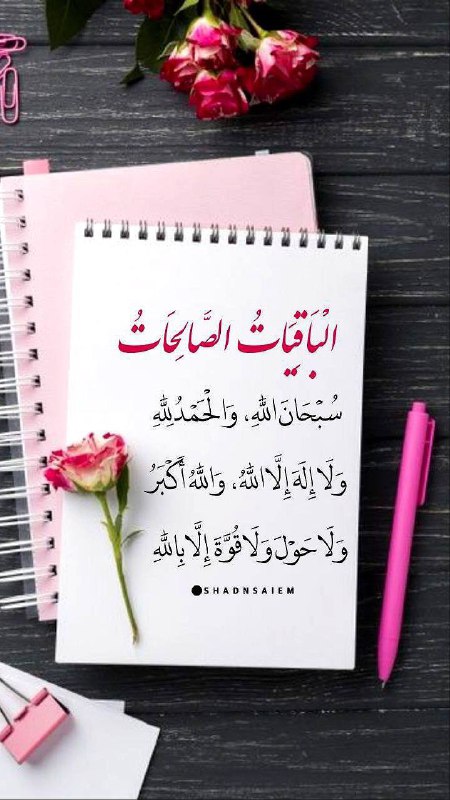 الْبَاقِيَاتُ الصَّالِحَاتُ
سُبْحَانَ اللهِ، وَالْحَمْدُ لِلَّهِ
وَلَا إِلَهَ إِلَّا اللهُ، وَاللهُ أَكْبَرُ
وَلَا حَوْلَ وَلَا قُوَّةَ إِلَّا بِاللهِ
SHADNSAIEM